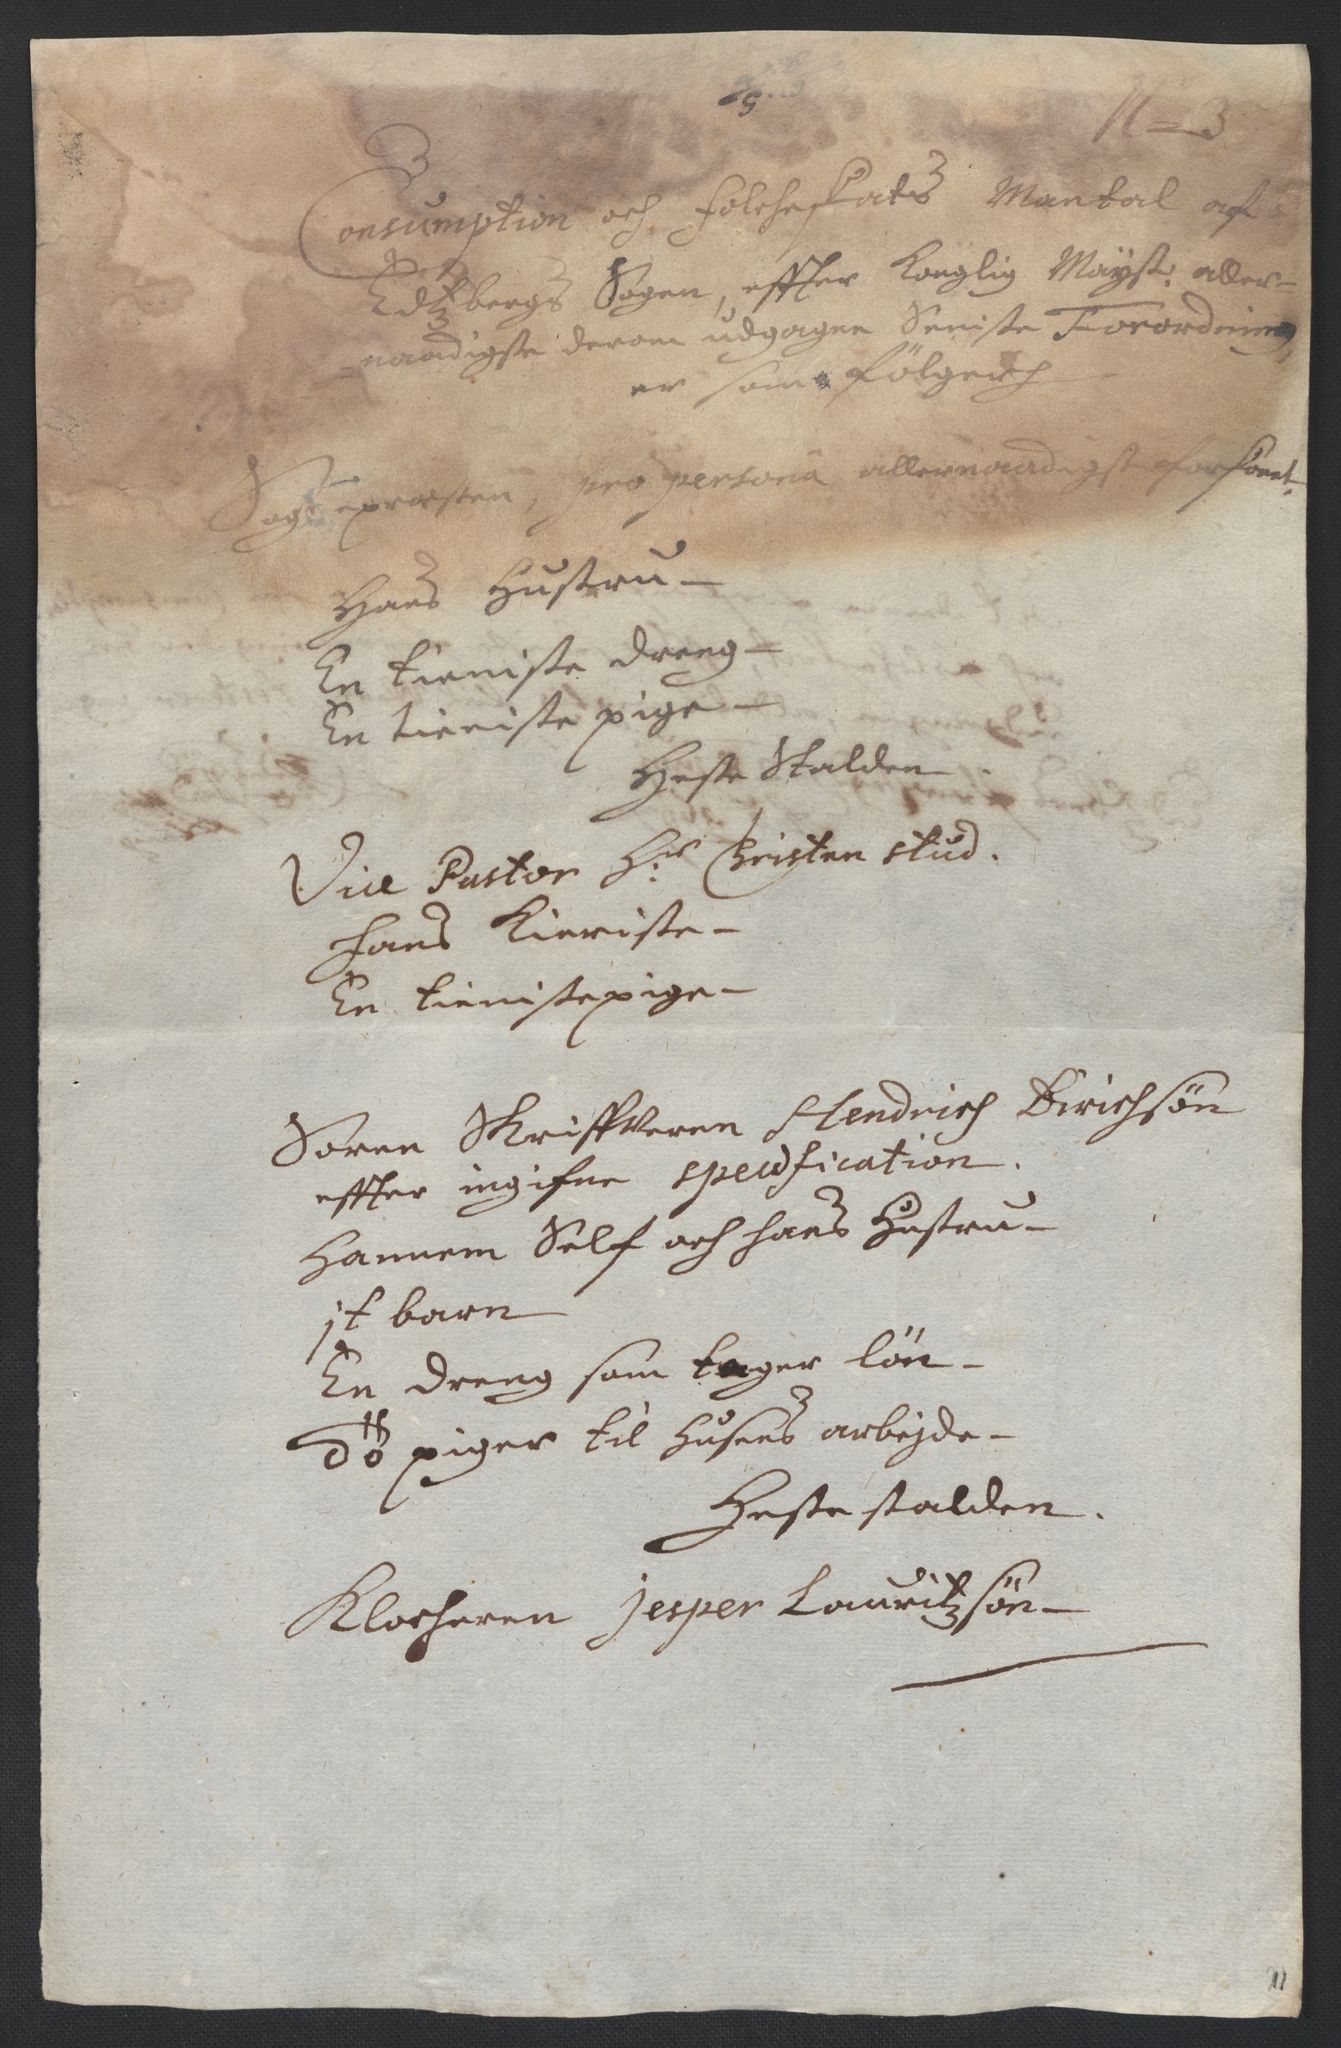 N=3
Consumption och Folcheskats Mantal af
Edtzbergs Sogen, effter Konglig Mayst: aller-
=naadigste derom udgagne Seniste Forordning,
er som følgerch
Sognepræsten, pro persona allernaadigst forskont.
Hans Hustru-
En tieniste dreng-
En tieniste pige-
Heste Stalden.
Vice Pastor Hr Christen stud.
hans Kieriste-
En tienistepige-
Soren Skriffveren Hendrich Dirichsøn
effter ingifne specification.
Hannem Self och hans Hustru-
jt barn
En dreng som tager løn-
To piger til Husens arbejde-
Heste stalden.
Klocheren Jesper Lauritzsøn-